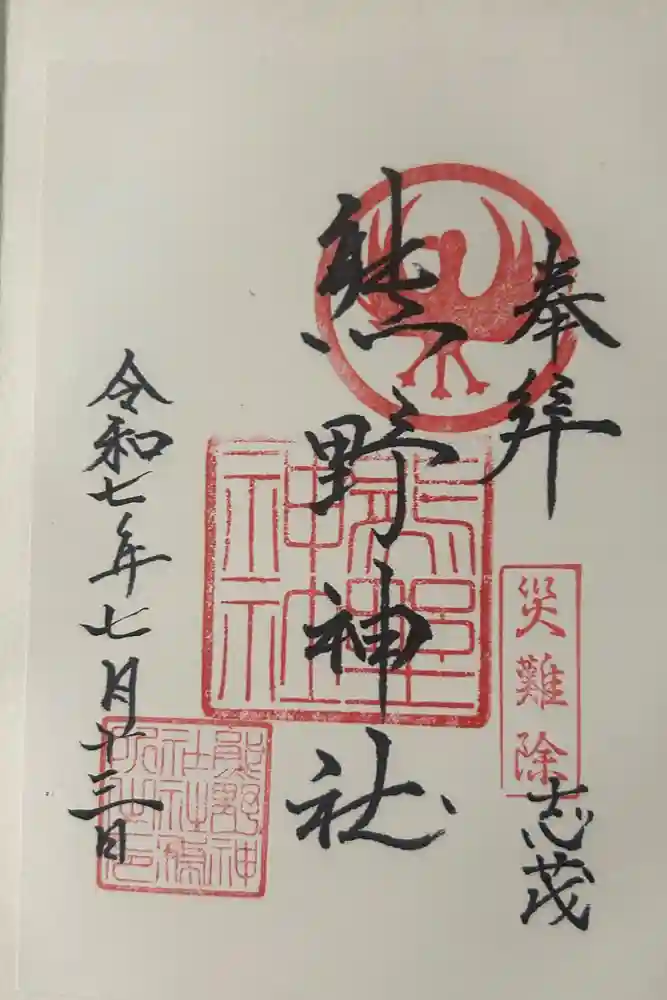 奉拝
災難除
志茂
熊野神社
熊野神社
令和七年七月廿三日
熊野神
社社務
所之印